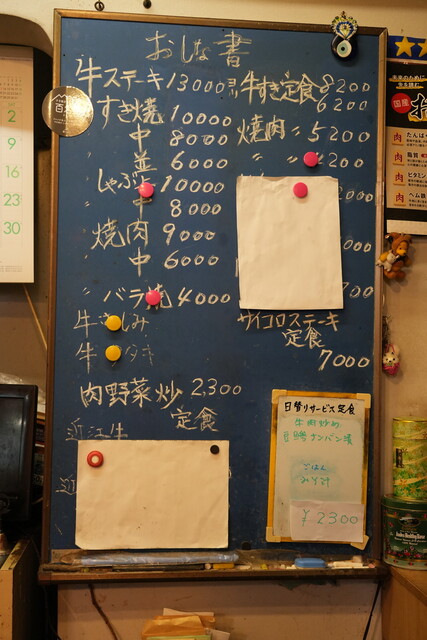 おしな書
牛ステーキ 13000ヨリ
すき焼 10000
〃 中 8000
〃 並 6000
しゃぶ 10000
中 8000
焼肉 9000
〃 中 6000
〃 バラ焼 4000
牛 しみ
牛 タキ
肉野菜炒定食 2,300
近江牛
近
牛すき定食 8200
6200
焼肉 〃 5200
〃 〃 200
000
000
000
サイコロステーキ
定食
7000
日替りサービス定食
牛肉炒め
ごはん
みそ汁
¥2300
2
9
16
23
30
百
国産
肉
肉
肉
肉
ビタミン
ヘム鉄